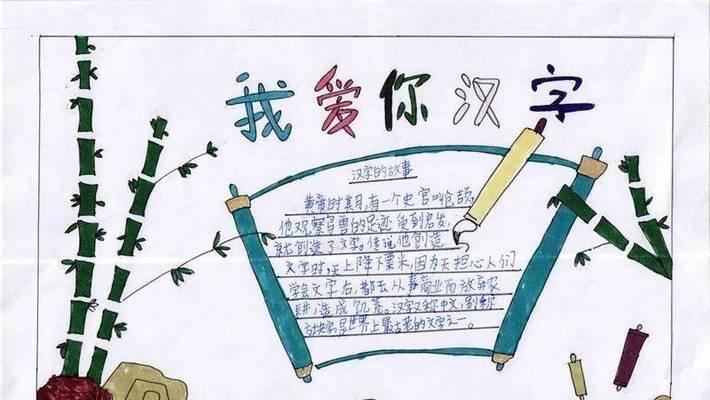 我爱你汉字
汉字的故事
黄帝时期,有一个史官叫仓颉,
他观察鸟兽的足迹,受到启发,
就创造了文字。传说他创造
文字时,天上降下粟米,因为天担心人们
学会文字后,都去从事商业而放弃农
耕,造成饥荒。汉字又称中文,别称
方块字,是世界上最古老的文字之一。